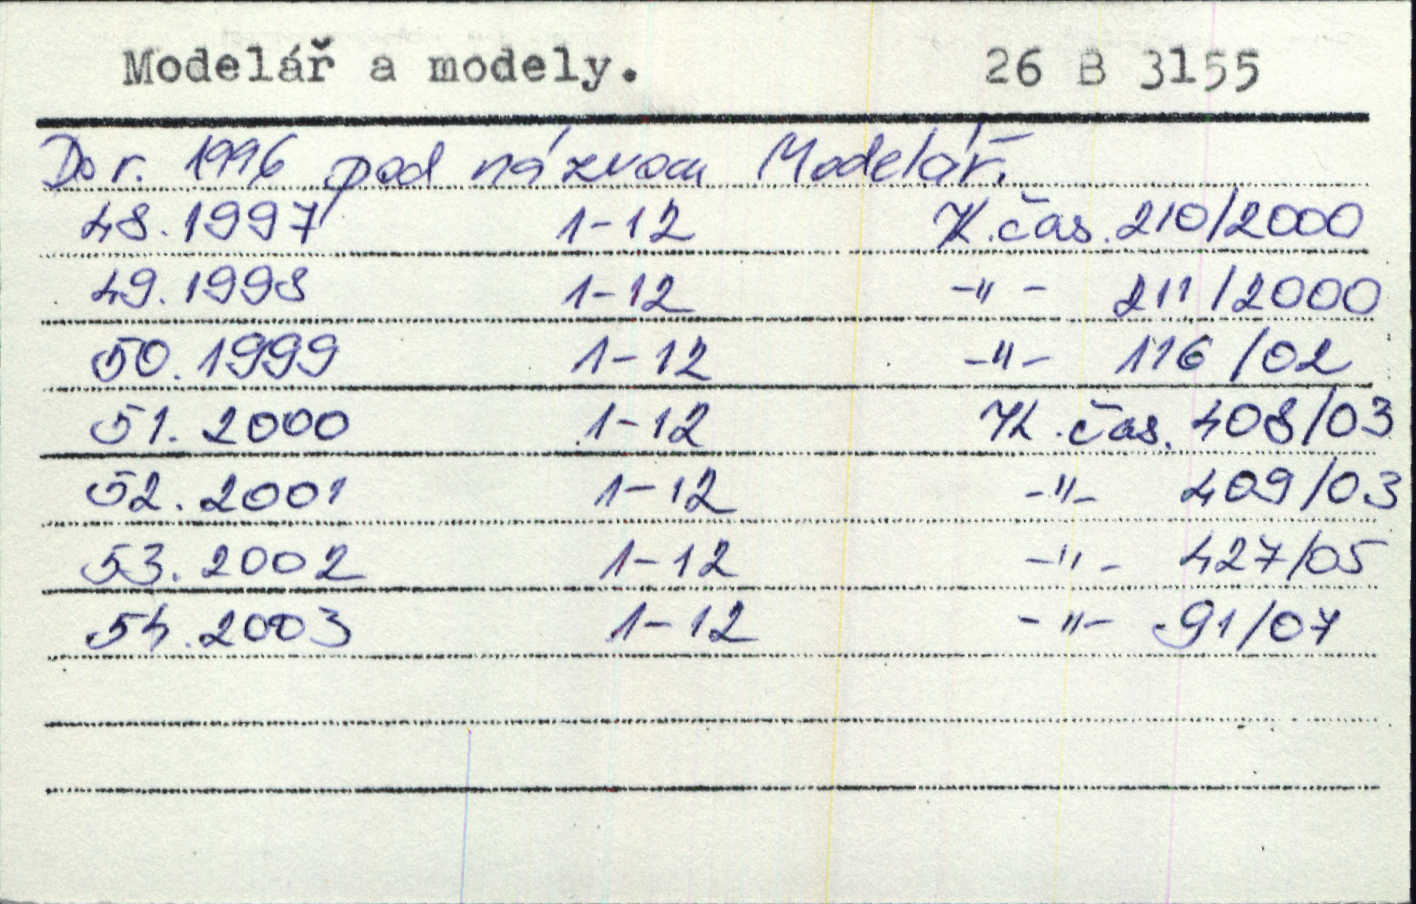 Modelář a modely. 26 B 3155
Do r. 1996 pod názvom Modelář.
48.1997 1-12 K.čas.210/2000
49.1998 1-12 -"- 211/2000
50.1999 1-12 -"- 116/02
51.2000 1-12 K.čas.408/03
52.2001 1-12 -"- 409/03
53.2002 1-12 -"- 427/05
54.2003 1-12 -"- 91/07